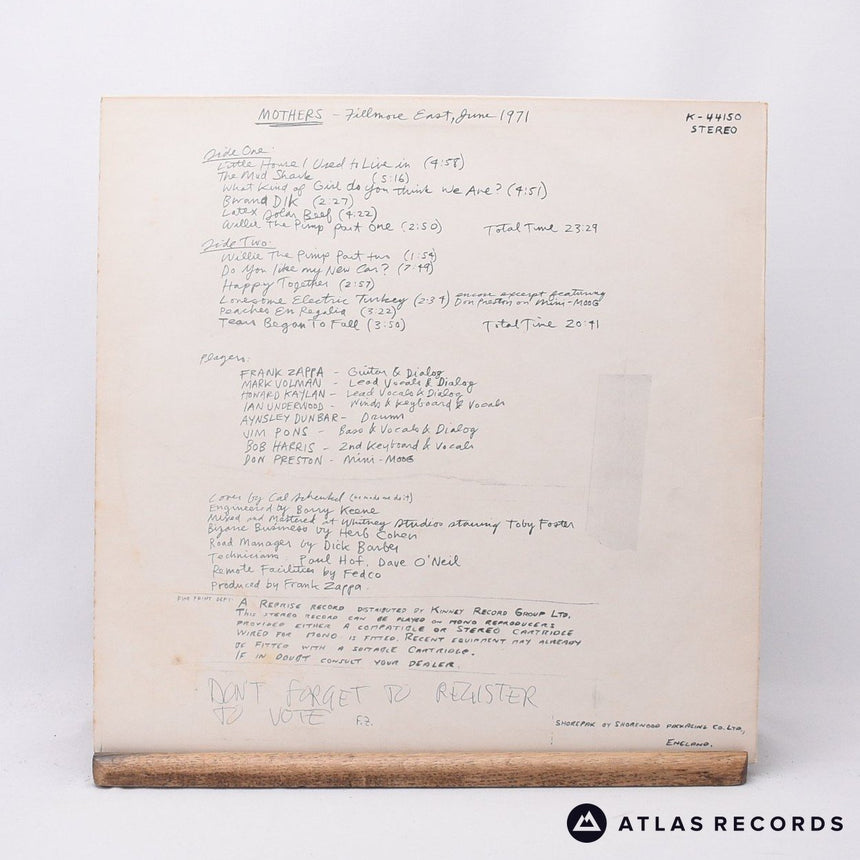 MOTHERS - Fillmore East, June 1971
K-44150
STEREO
Side One:
Little House I Used to Live in (4:58)
The Mud Shark (5:16)
What Kind of Girl do you think We Are? (4:51)
Bwana Dik (2:27)
Latex Solar Beef (4:22)
Willie The Pimp part One (2:50) Total Time 23:29
Side Two:
Willie The Pimp Part two (1:54)
Do You like my New Car? (7:49)
Happy Together (2:57)
Lonesome Electric Turkey (2:34) encore excerpt featuring
Don Preston on Mini-Moog
Peaches En Regalia (3:22)
Tears Began To Fall (3:50) Total Time 20:41
Players:
FRANK ZAPPA - Guitar & Dialog
MARK VOLMAN - Lead Vocals & Dialog
HOWARD KAYLAN - Lead Vocals & Dialog
IAN UNDERWOOD - Winds & Keyboard & Vocals
AYNSLEY DUNBAR - Drums
JIM PONS - Bass & Vocals & Dialog
BOB HARRIS - 2nd Keyboard & Vocals
DON PRESTON - Mini-MOOG
Cover by Cal Schenkel (he made me do it)
Engineered by Barry Keene
Mixed and Mastered at Whitney Studios starring Toby Foster
Bizarre Business by Herb Cohen
Road Manager by Dick Barber
Technicians Paul Hof, Dave O'Neil
Remote Facilities by Fedco
Produced by Frank Zappa.
FINE PRINT DEPT:
A REPRISE RECORD DISTRIBUTED BY KINNEY RECORD GROUP LTD.
THIS STEREO RECORD CAN BE PLAYED ON MONO REPRODUCERS
PROVIDED EITHER A COMPATIBLE OR STEREO CARTRIDGE
WIRED FOR MONO IS FITTED. RECENT EQUIPMENT MAY ALREADY
BE FITTED WITH A SUITABLE CARTRIDGE.
IF IN DOUBT CONSULT YOUR DEALER.
DON'T FORGET TO REGISTER
TO VOTE F.Z.
SHOREPAK BY SHOREWOOD PACKAGING CO. LTD.,
ENGLAND.
ATLAS RECORDS